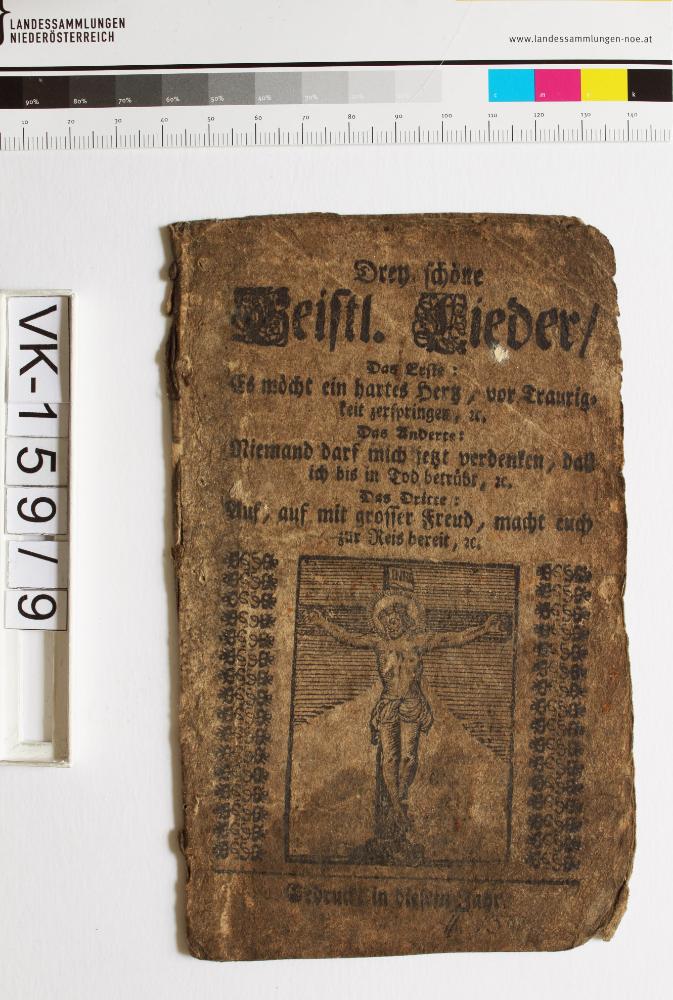 LANDESSAMMLUNGEN
NIEDERÖSTERREICH
www.landessammlungen-noe.at
90% 80% 70% 60% 50% 40% c m y k
10 20 30 40 50 60 70 80 90 100 110 120 130 140
VK-1597/9
Drey schöne
Geistl. Lieder/
Das Erste:
Es möcht ein hartes Hertz, vor Traurig-
keit zerspringen, ꝛc.
Das Anderte:
Niemand darf mich jetzt verdenken, daß
ich bis in Tod betrübt, ꝛc.
Das Dritte:
Auf, auf mit grosser Freud, macht euch
zur Reis bereit, ꝛc.
INRI
Gedruckt in diesem Jahr.